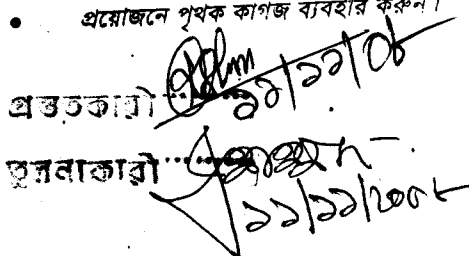 • প্রয়োজনে পৃথক কাগজ ব্যবহার করুন।
প্রস্তুতকারী ........ ১১/১১/০৮
তুলনাকারী ........
১১/১১/২০০৮